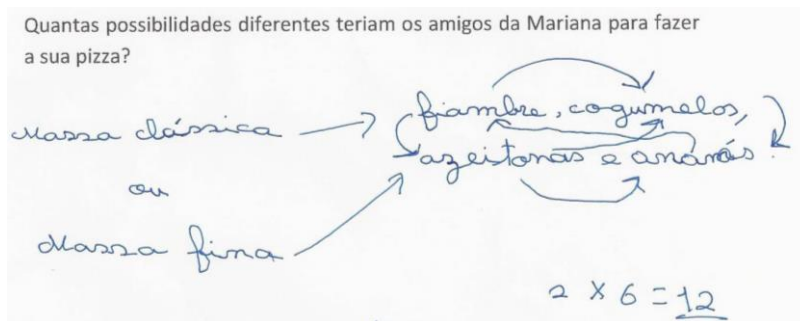 Quantas possibilidades diferentes teriam os amigos da Mariana para fazer
a sua pizza?
Massa clássica
fiambre, cogumelos,
azeitonas e ananás.
ou
Massa fina
2 X 6 = 12